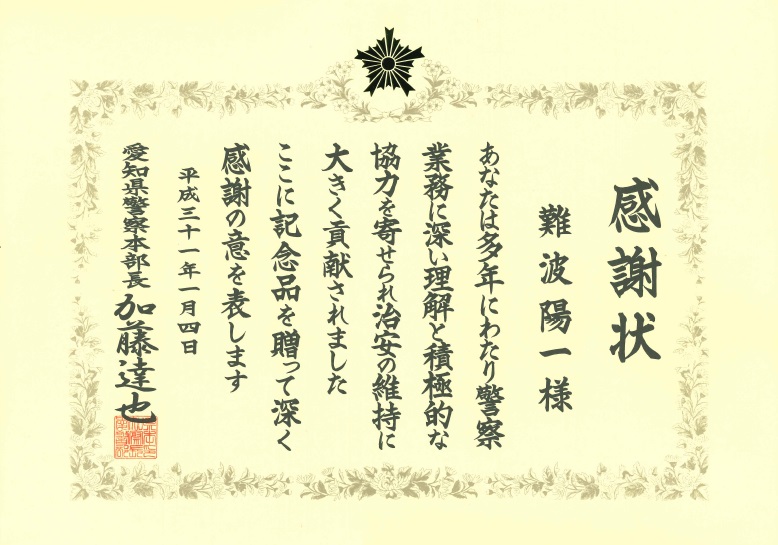 感謝状
難波陽一様
あなたは多年にわたり警察
業務に深い理解と積極的な
協力を寄せられ治安の維持に
大きく貢献されました
ここに記念品を贈って深く
感謝の意を表します
平成三十一年一月四日
愛知県警察本部長 加藤達也